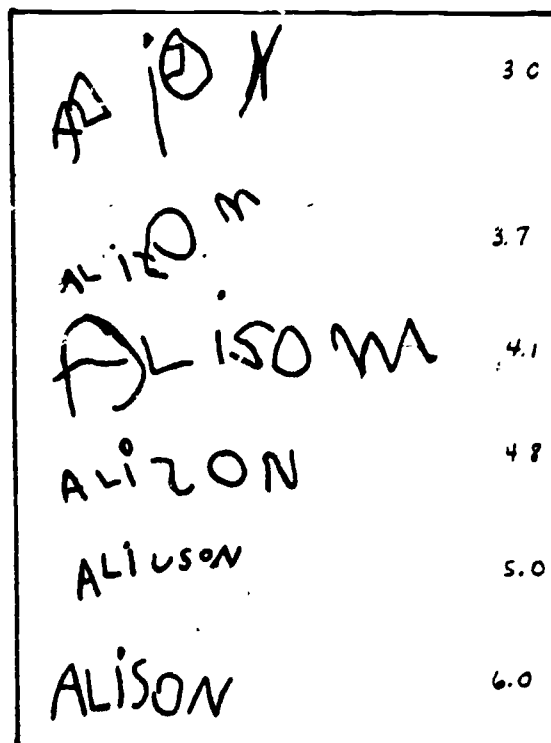 A i O X 3.0
ALizO m 3.7
ALiSO M 4.1
ALiZON 4.8
ALiUSON 5.0
ALiSON 6.0